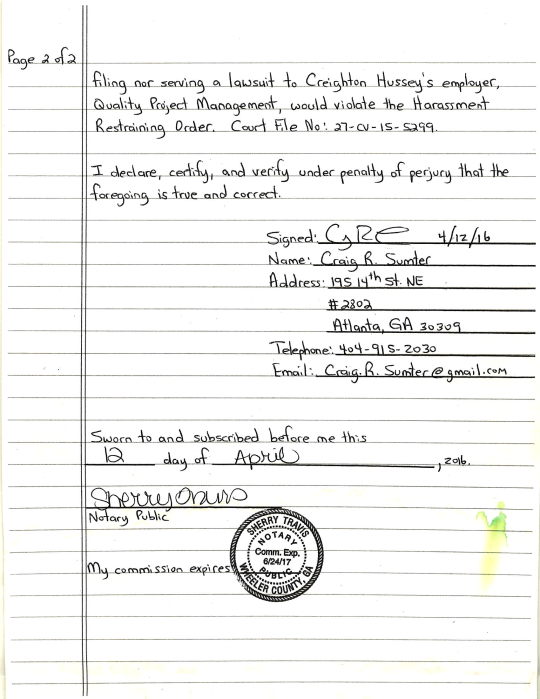 Page 2 of 2
filing nor serving a lawsuit to Creighton Hussey's employer,
Quality Project Management, would violate the Harassment
Restraining Order. Court File No: 27-CV-15-5299.
I declare, certify, and verify under penalty of perjury that the
foregoing is true and correct.
Signed: 4/12/16
Name: Craig R. Sumter
Address: 195 14th St. NE
#2802
Atlanta, GA 30309
Telephone: 404-915-2030
Email: Craig.R.Sumter@gmail.com
Sworn to and subscribed before me this
12 day of April, 2016.
Sherry
Notary Public
My commission expires
SHERRY TRAVIS
NOTARY
Comm. Exp.
6/24/17
PUBLIC
WHEELER COUNTY, GA